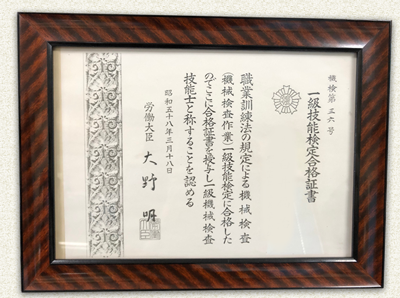 機検第三六号
一級技能検定合格証書
職業訓練法の規定による機械検査
(機械検査作業)一級技能検定に合格した
のでここに合格証書を授与し一級機械検査
技能士と称することを認める
昭和五十八年三月十八日
労働大臣 大野明